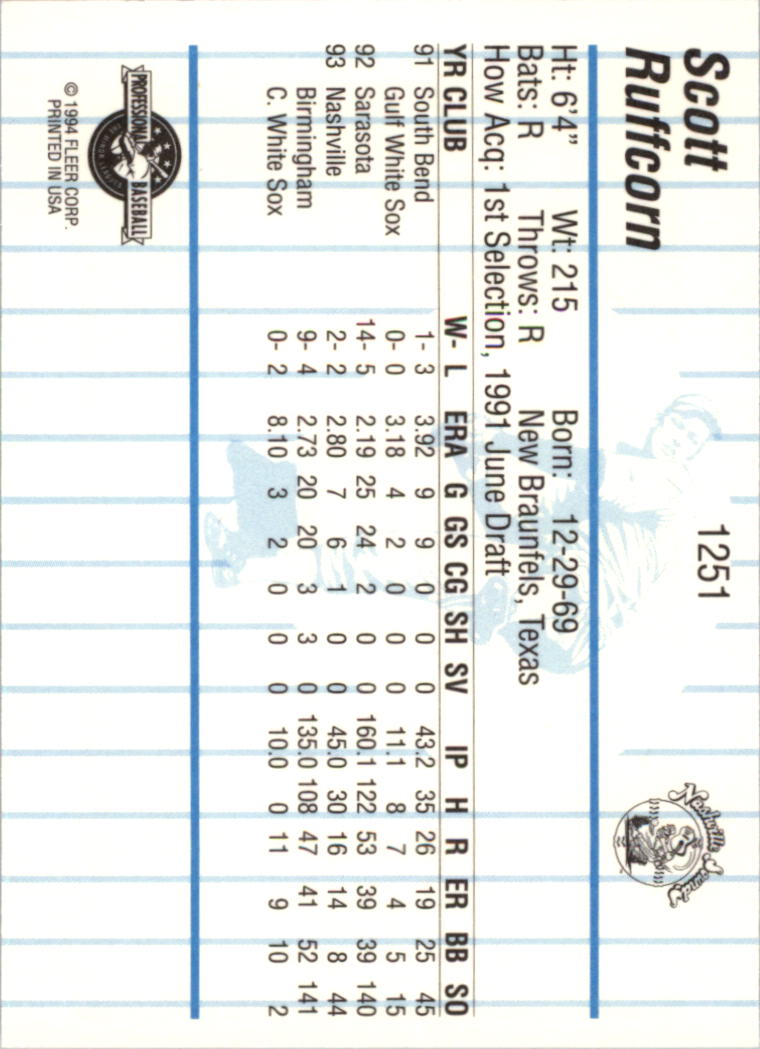 Scott
Ruffcorn
1251
Nashville Sounds
Ht: 6'4" Wt: 215 Born: 12-29-69
Bats: R Throws: R New Braunfels, Texas
How Acq: 1st Selection, 1991 June Draft
YR CLUB W- L ERA G GS CG SH SV IP H R ER BB SO
91 South Bend 1- 3 3.92 9 9 0 0 0 43.2 35 26 19 25 45
Gulf White Sox 0- 0 3.18 4 2 0 0 0 11.1 8 7 4 5 15
92 Sarasota 14- 5 2.19 25 24 2 0 0 160.1 122 53 39 39 140
93 Nashville 2- 2 2.80 7 6 1 0 0 45.0 30 16 14 8 44
Birmingham 9- 4 2.73 20 20 3 3 0 135.0 108 47 41 52 141
C. White Sox 0- 2 8.10 3 2 0 0 0 10.0 0 11 9 10 2
PROFESSIONAL BASEBALL
© 1994 FLEER CORP.
PRINTED IN USA